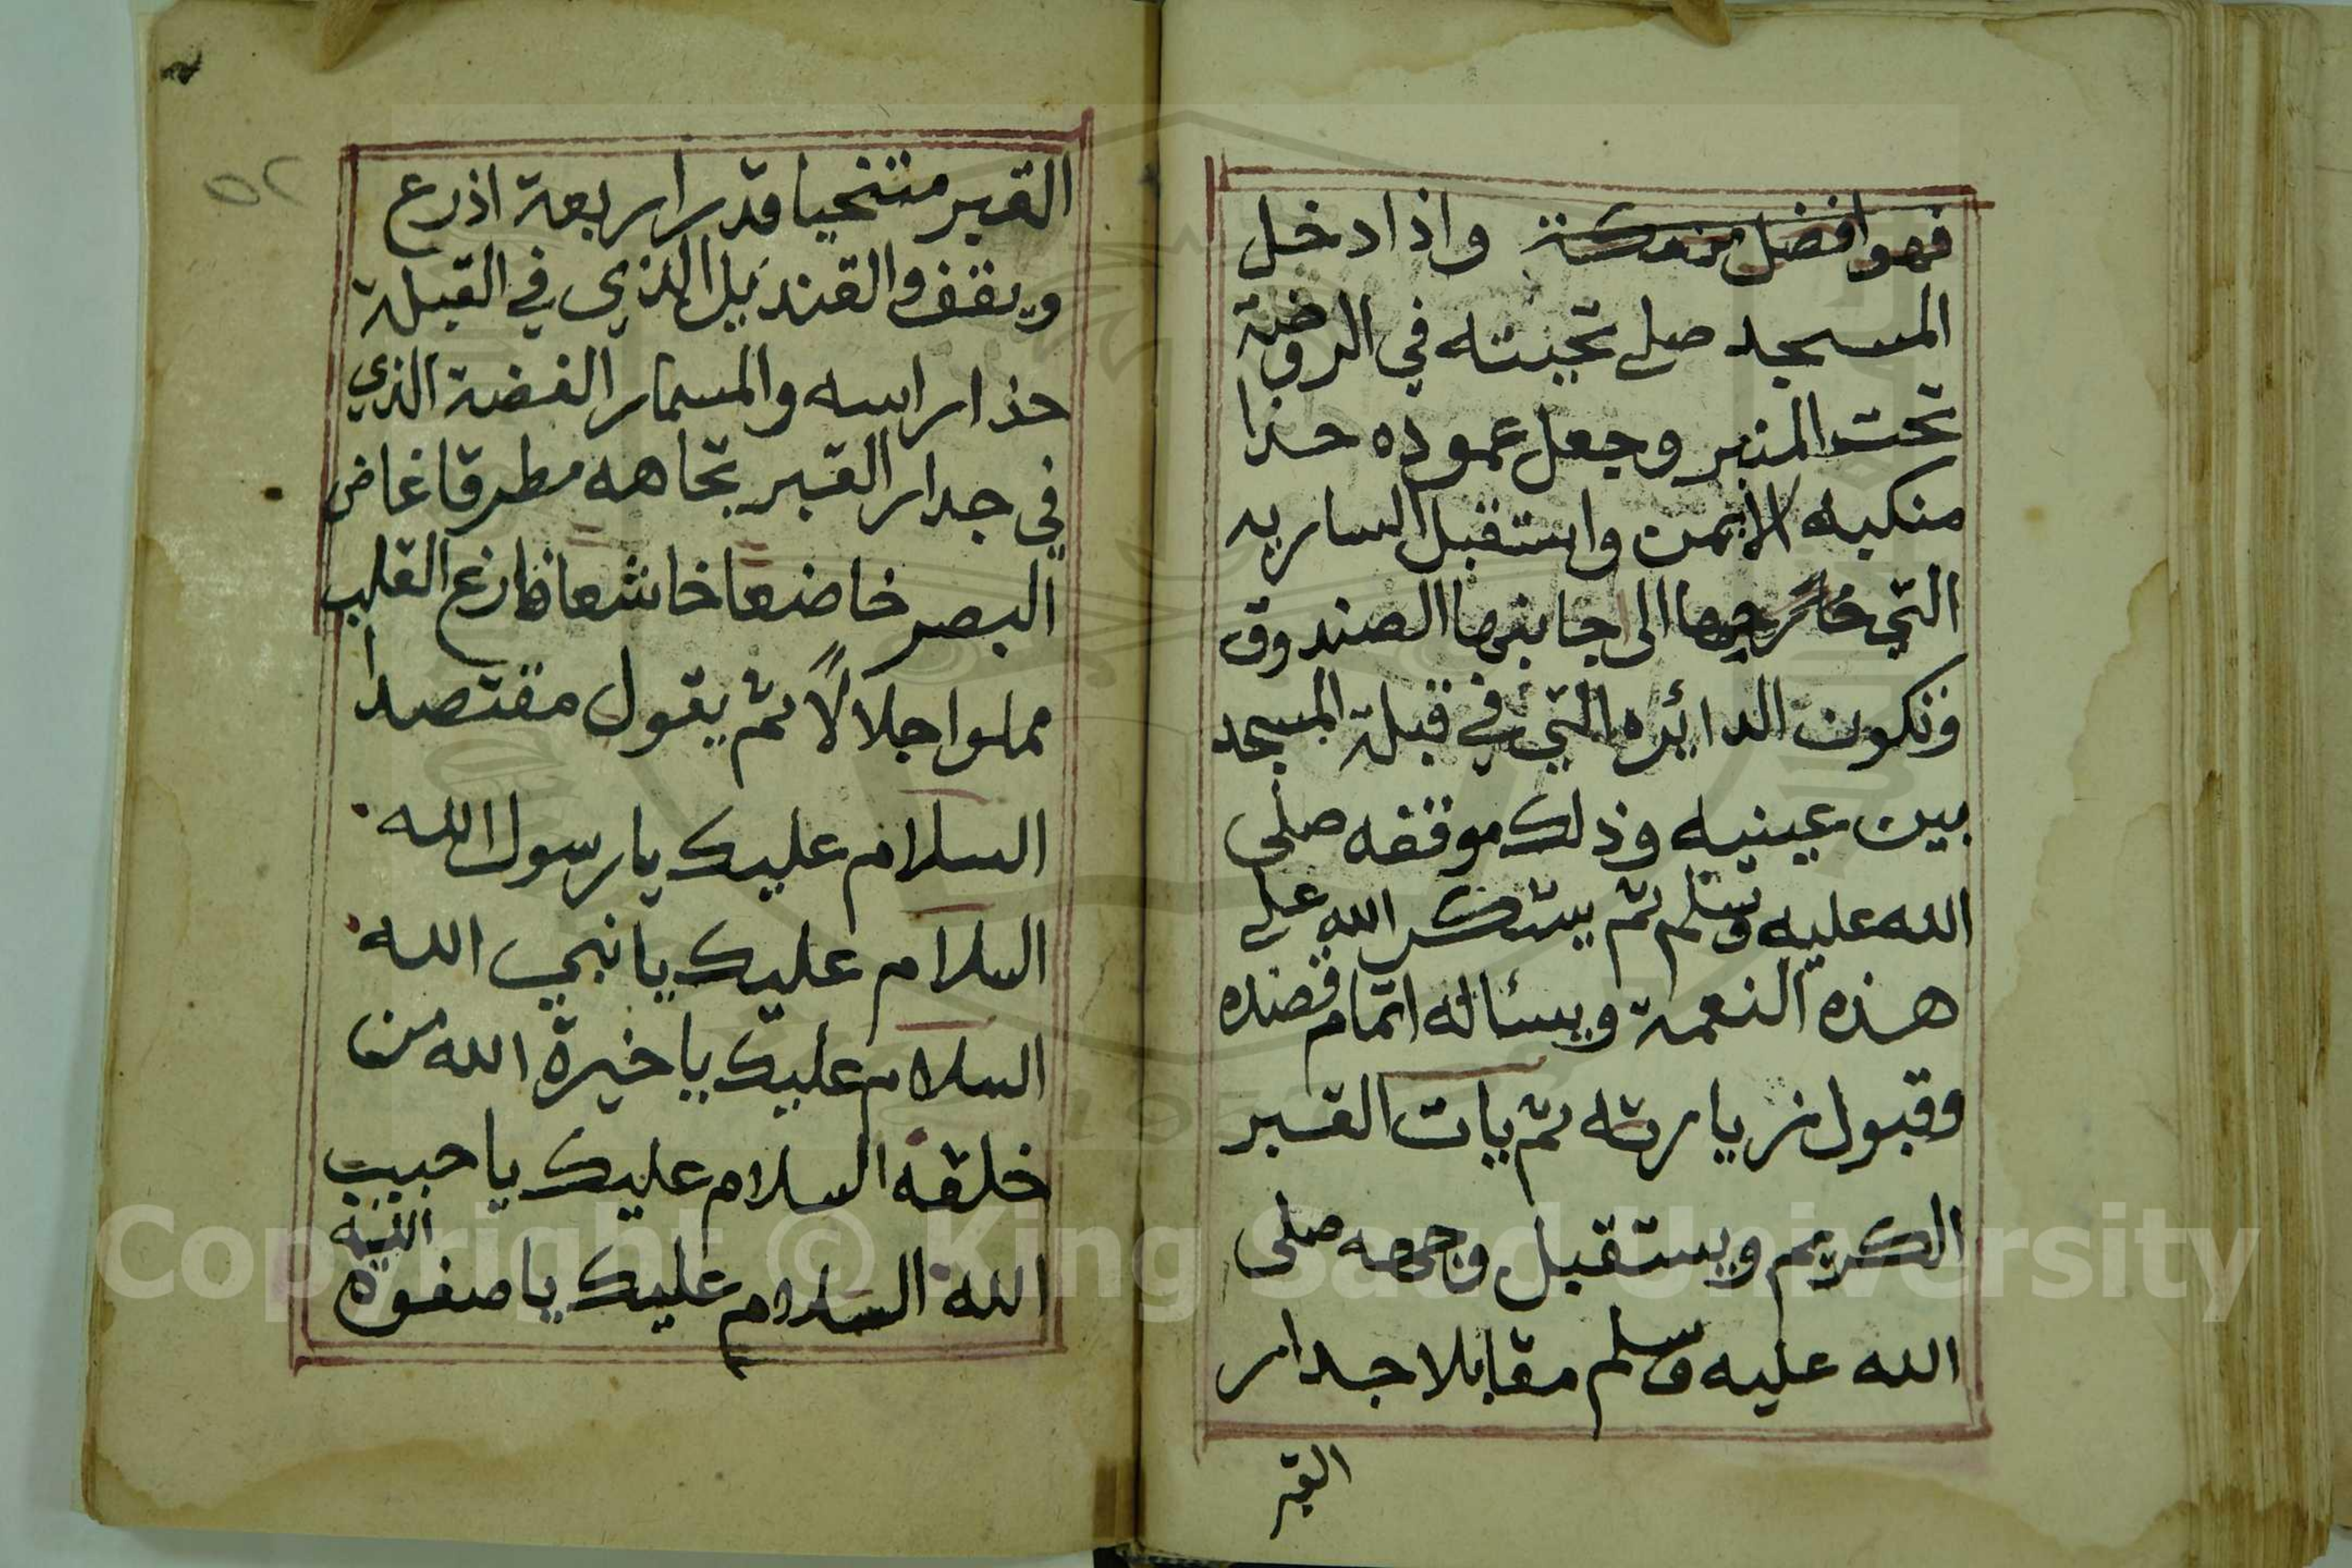 فهو افضل من مكة واذا دخل
المسجد صلى تحيته في الروضة
تحت المنبر وجعل عموده حذا
منكبه الايمن واستقبل الساريه
التي الى جانبها الصندوق
وتكون الدائره التي في قبلة المسجد
بين عينيه وذلك موقفه صلى
الله عليه وسلم ثم يشكر الله على
هذه النعمة ويسئاله اتمام قصده
وقبول زيارته ثم يات القبر
الكريم ويستقبل وجهه صلى
الله عليه وسلم مقابلا جدار
القبر
٥٢
القبر متنحيا قدر اربعة اذرع
ويقف والقنديل الذي في القبلة
حذا راسه والمسمار الفضة الذي
في جدار القبر تجاهه مطرقا غاض
البصر خاضعا خاشعا فارغ القلب
مملوا جلالاً ثم يقول مقتصدا
السلام عليك يا رسول الله
السلام عليك يا نبي الله
السلام عليك يا خيرة الله من
خلقه السلام عليك يا حبيب
الله السلام عليك يا صفوة الله
Copyright © King Saud University
1957